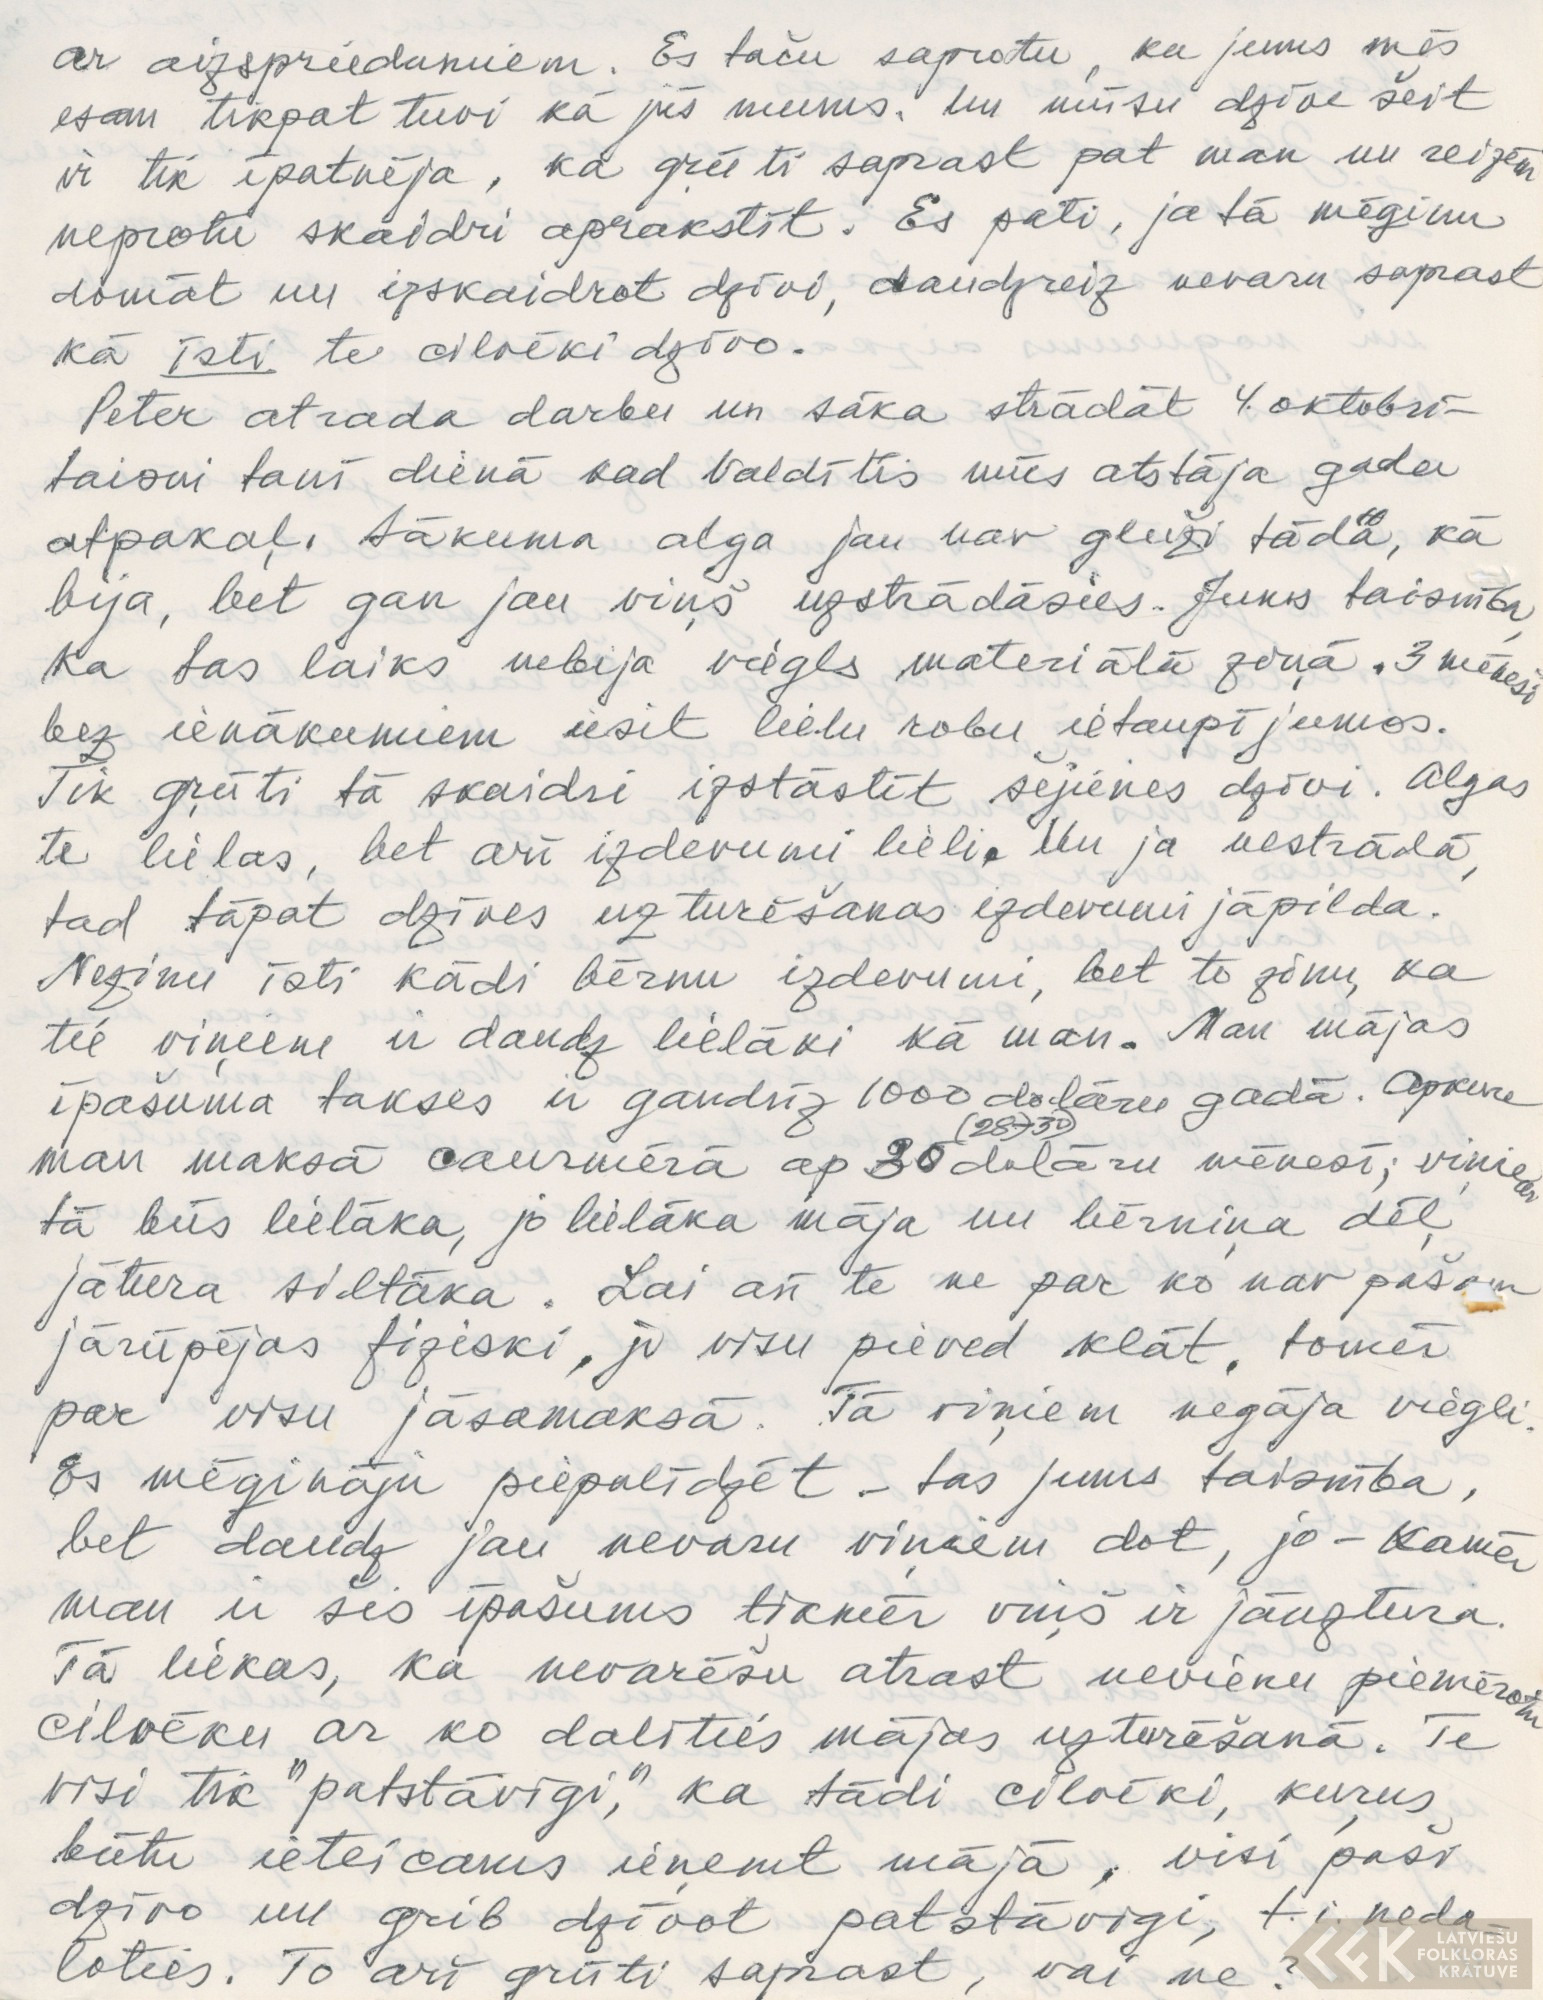 ar aizspriedumiem. Es taču saprotu, ka jums mēs
esam tikpat tuvi kā jūs mums. Un mūsu dzīve šeit
ir tik īpatnēja, ka grūti saprast pat man un reizēm
neprotu skaidri aprakstīt. Es pati, ja tā mēģinu
domāt un izskaidrot dzīvi, daudzreiz nevaru saprast
kā īsti te cilvēki dzīvo.
Peter atrada darbu un sāka strādāt 4. oktobrī –
taisni tanī dienā kad Valdītis mūs atstāja gadu
atpakaļ. Sākuma alga jau nav gluži tāda, kā
bija, bet gan jau viņš uzstrādāsies. Jums taisnība,
ka tas laiks nebija viegls materiālā ziņā. 3 mēneši
bez ienākumiem iesit lielu robu ietaupījumos.
Tik grūti tā skaidri izstāstīt šejienes dzīvi. Algas
te lielas, bet arī izdevumi lieli. Un ja nestrādā,
tad tāpat dzīves uzturēšanas izdevumi jāpilda.
Nezinu īsti kādi bērnu izdevumi, bet to zinu, ka
tie viņiem ir daudz lielāki kā man. Man mājas
īpašuma takses ir gandrīz 1000 dolāru gadā. Apkure
man maksā caurmērā ap 30 (28-30) dolāru mēnesī; viņiem
tā būs lielāka, jo lielāka māja un bērniņa dēļ
jātura siltāka. Lai arī te ne par ko nav pašam
jārūpējas fiziski, jo visu pieved klāt, tomēr
par visu jāsamaksā. Tā viņiem negāja viegli.
Es mēģināju piepalīdzēt – tas jums taisnība,
bet daudz jau nevaru viņiem dot, jo – kamēr
man ir šis īpašums tikmēr viņš ir jāuztura.
Tā liekas, ka nevarēšu atrast nevienu piemērotu
cilvēku ar ko dalīties mājas uzturēšanā. Te
visi tik "patstāvīgi," ka tādi cilvēki, kuŗus
būtu ieteicams ieņemt mājā, visi paši
dzīvo un grib dzīvot patstāvīgi, t.i. neda-
loties. To arī grūti saprast, vai ne?
LATVIEŠU
FOLKLORAS
KRĀTUVE